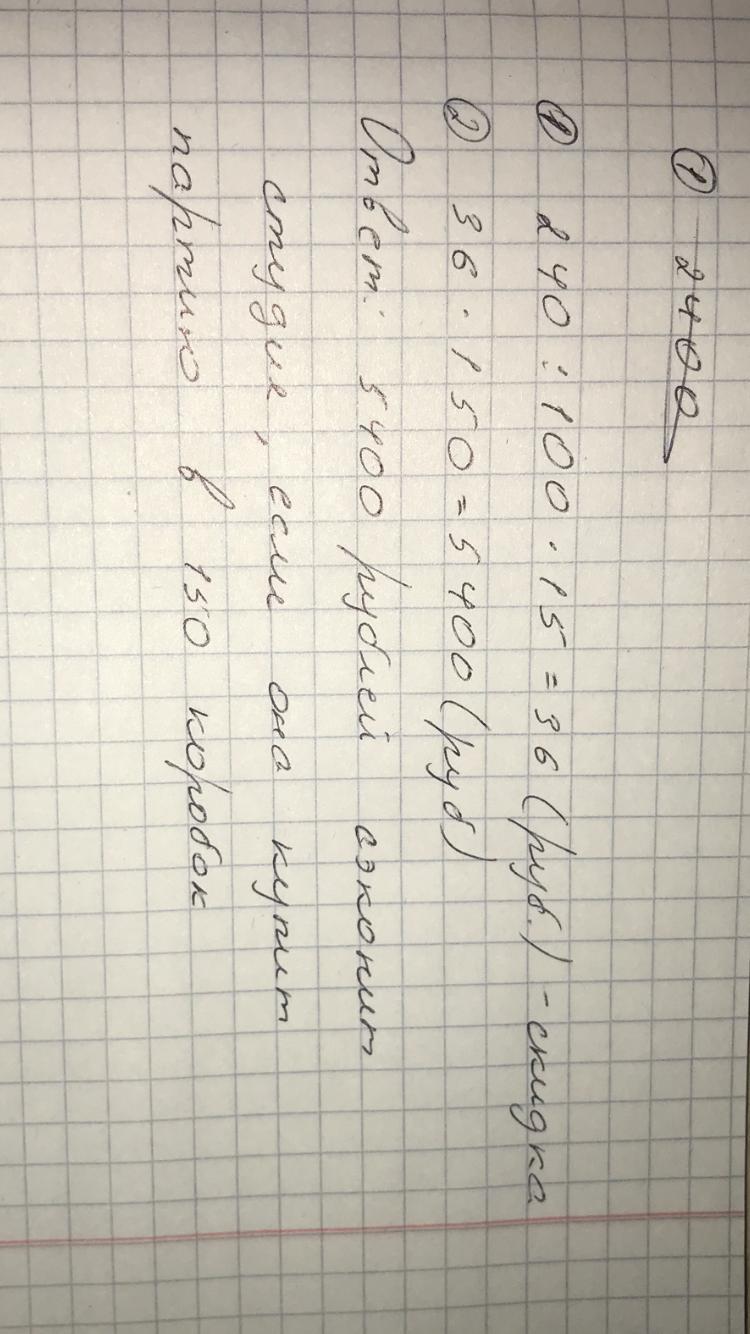 ① 2400
① 240 : 100 · 15 = 36 (руб.) - скидка
② 36 · 150 = 5400 (руб)
Ответ: 5400 рублей сэконит
студия, если она купит
партию в 150 коробок